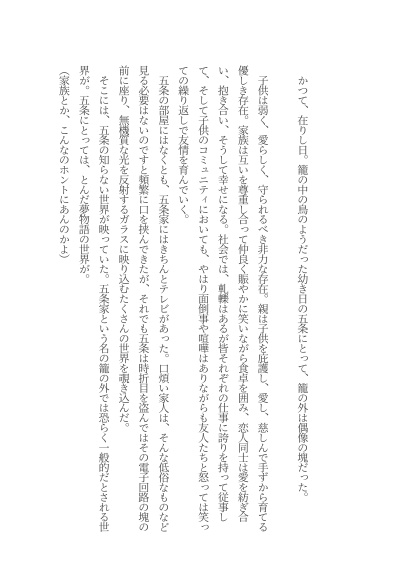 かつて、在りし日。籠の中の鳥のようだった幼き日の五条にとって、籠の外は偶像の塊だった。
子供は弱く、愛らしく、守られるべき非力な存在。親は子供を庇護し、愛し、慈しんで手ずから育てる
優しき存在。家族は互いを尊重し合って仲良く賑やかに笑いながら食卓を囲み、恋人同士は愛を紡ぎ合
い、抱き合い、そうして幸せになる。社会では、軋轢はあるが皆それぞれの仕事に誇りを持って従事し
て、そして子供のコミュニティにおいても、やはり面倒事や喧嘩はありながらも友人たちと怒っては笑っ
ての繰り返しで友情を育んでいく。
五条の部屋にはなくとも、五条家にはきちんとテレビがあった。口煩い家人は、そんな低俗なものなど
見る必要はないのですと頻繁に口を挟んできたが、それでも五条は時折目を盗んではその電子回路の塊の
前に座り、無機質な光を反射するガラスに映り込むたくさんの世界を覗き込んだ。
そこには、五条の知らない世界が映っていた。五条家という名の籠の外では恐らく一般的だとされる世
界が。五条にとっては、とんだ夢物語の世界が。
（家族とか、こんなのホントにあんのかよ）